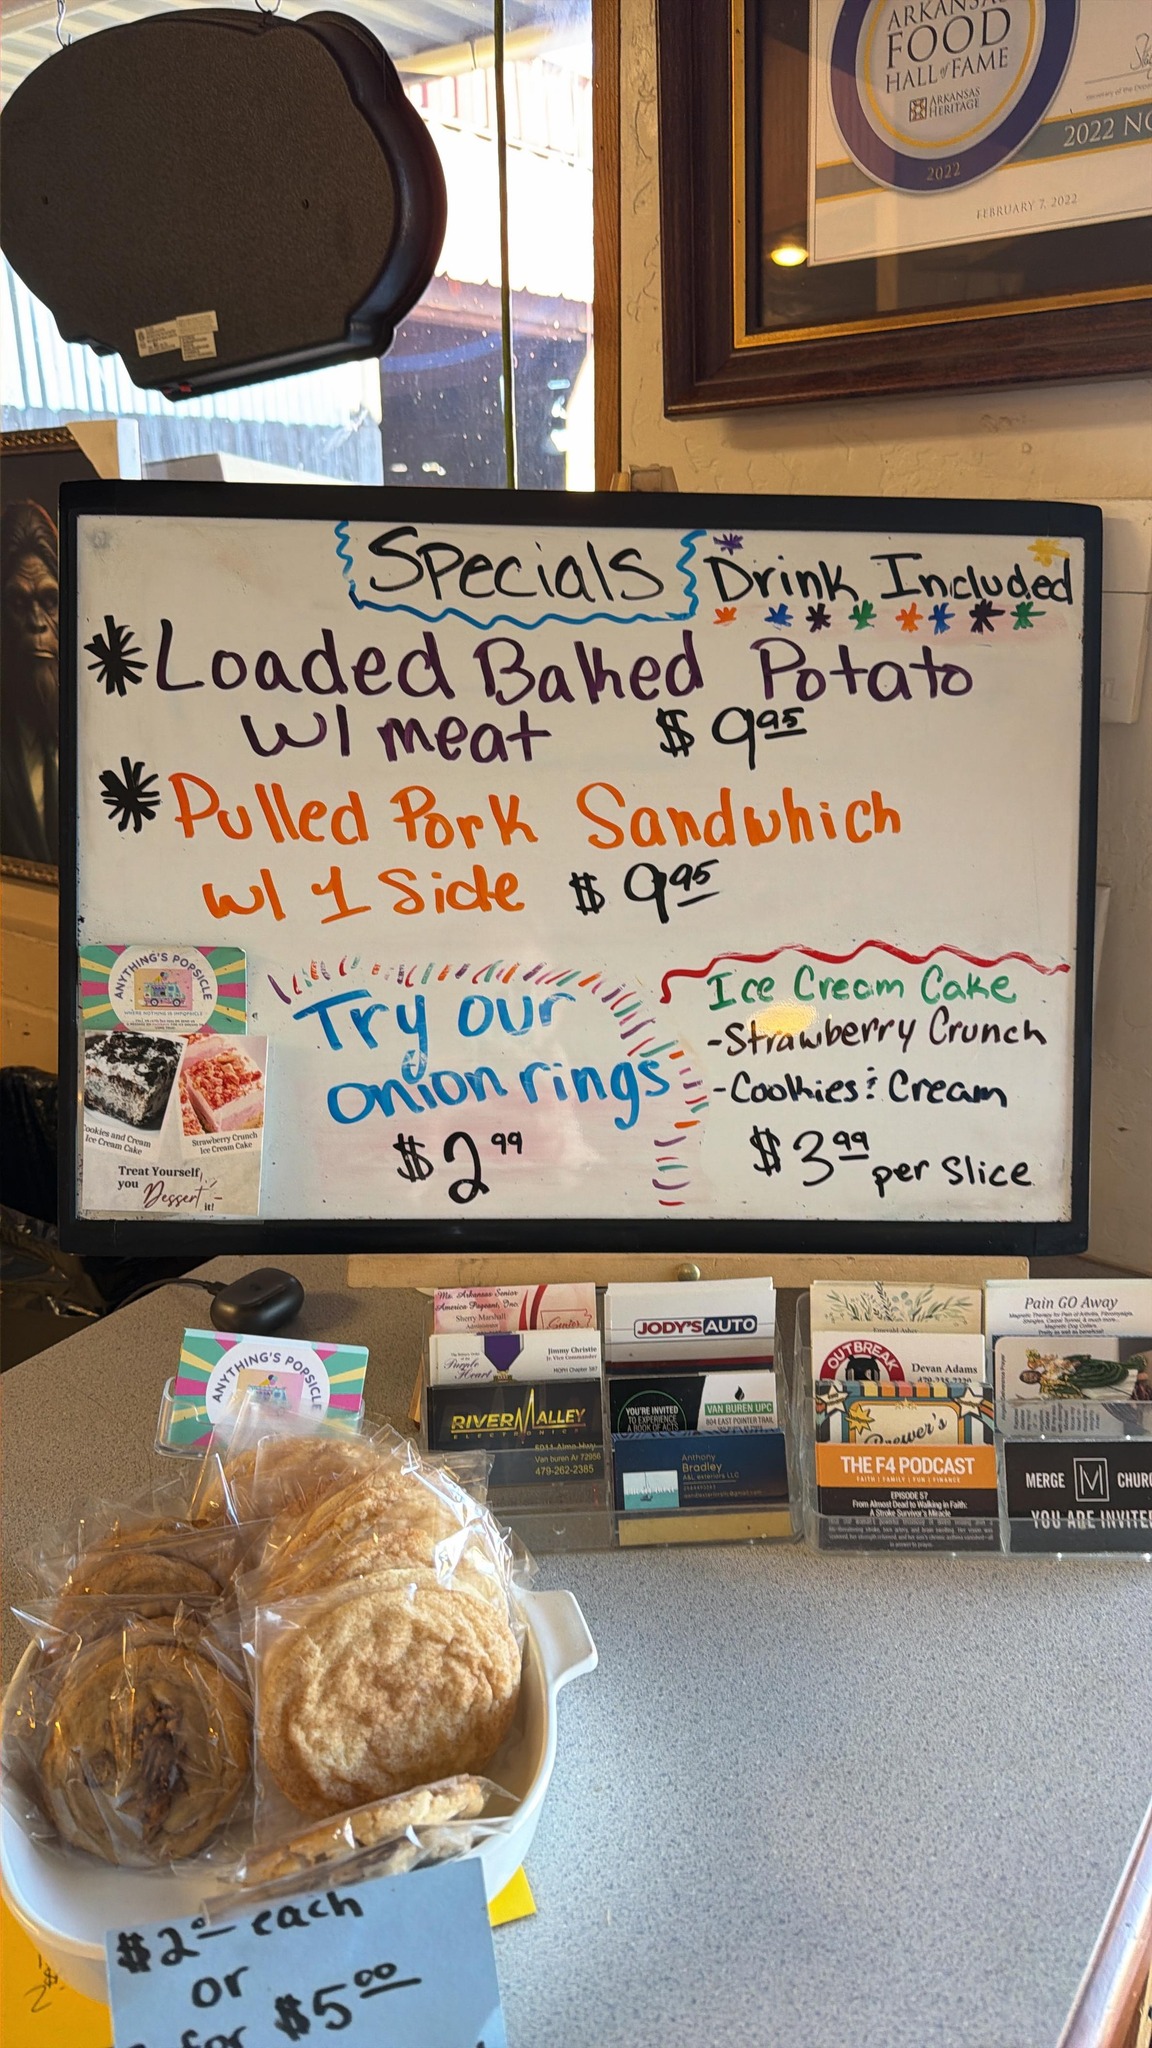 ARKANSAS
FOOD
HALL of FAME
ARKANSAS
HERITAGE
2022
2022
FEBRUARY 7, 2022
Specials
Drink Included
*Loaded Baked Potato
w/ meat $9.95
*Pulled Pork Sandwhich
w/ 1 Side $9.95
ANYTHING'S POPSICLE
WHERE NOTHING IS IMPOPSICLE
Cookies and Cream
Ice Cream Cake
Strawberry Crunch
Ice Cream Cake
Treat Yourself,
you Dessert
it!
Try our
onion rings
$2.99
Ice Cream Cake
-Strawberry Crunch
-Cookies & Cream
$3.99 per Slice
ANYTHING'S POPSICLE
Ms. Arkansas Senior
America Pageant, Inc.
Sherry Marshall
Jimmy Christie
Jr. Vice Commander
MOPH Chapter 587
Purple
Heart
RIVER VALLEY
ELECTRONICS
Van buren Ar 72956
479-262-2385
JODY'S AUTO
YOU'RE INVITED
TO EXPERIENCE
A BOOK OF ACTS
VAN BUREN UPC
804 EAST POINTER TRAIL
Anthony
Bradley
A&L exteriors LLC
OUTBREAK
Devan Adams
Brewer's
THE F4 PODCAST
FAITH | FAMILY | FUN | FINANCE
EPISODE 57
From Almost Dead to Walking in Faith:
A Stroke Survivor's Miracle
Pain GO Away
MERGE M CHURC
YOU ARE INVITE
$2.0 each
or
for $5.00